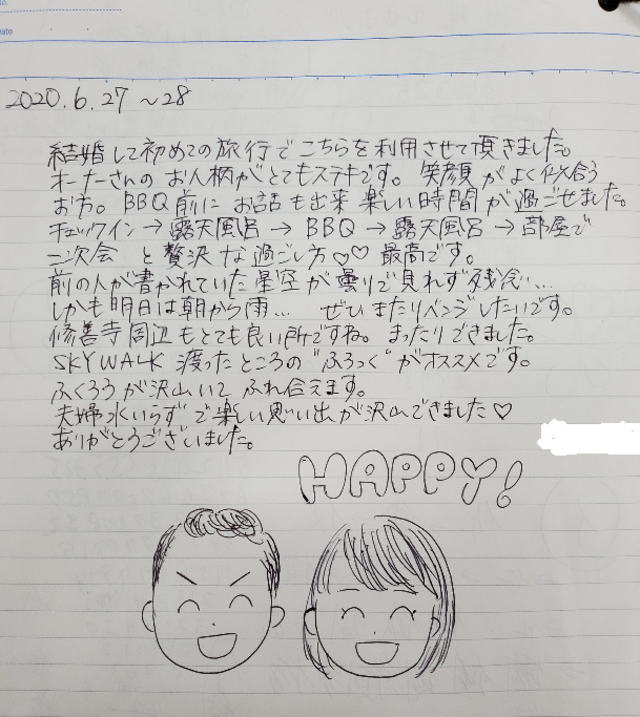 2020.6.27 ~28
結婚して初めての旅行でこちらを利用させて頂きました。
オーナーさんのお人柄がとてもステキです。笑顔がよく似合う
お方。BBQ前にお話も出来楽しい時間が過ごせました。
チェックイン→露天風呂→BBQ→露天風呂→部屋で
二次会と贅沢な過ごし方♡♡最高です。
前の人が書かれていた星空が曇りで見れず残念...
しかも明日は朝から雨... ぜひまたリベンジしたいです。
修善寺周辺もとても良い所ですね。まったりできました。
SKYWALK 渡ったところの"ふろっく"がオススメです。
ふくろうが沢山いてふれ合えます。
夫婦水いらずで楽しい思い出が沢山できました♡
ありがとうございました。
HAPPY!